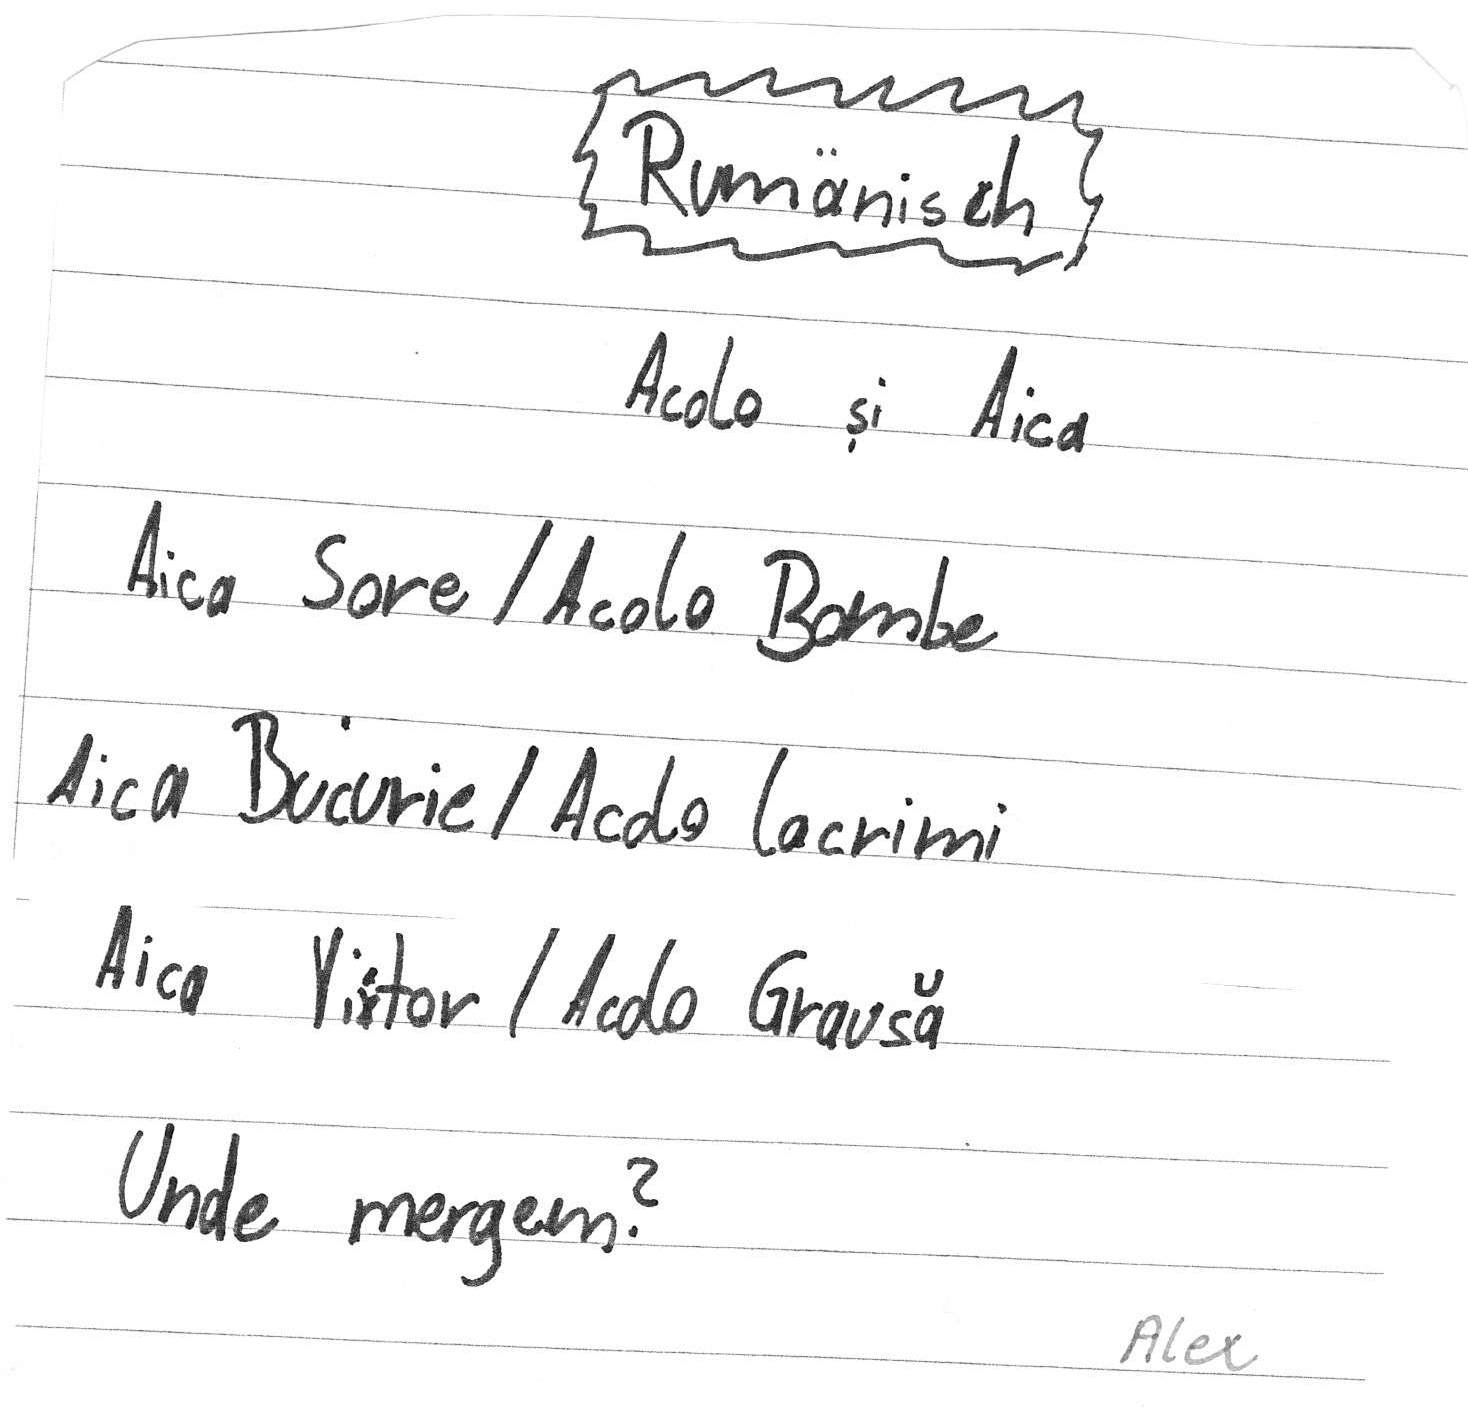 Rumänisch
Acolo și Aica
Aica Sore / Acolo Bombe
Aica Bucurie / Acolo lacrimi
Aica Viitor / Acolo Grausă
Unde mergem?
Alex